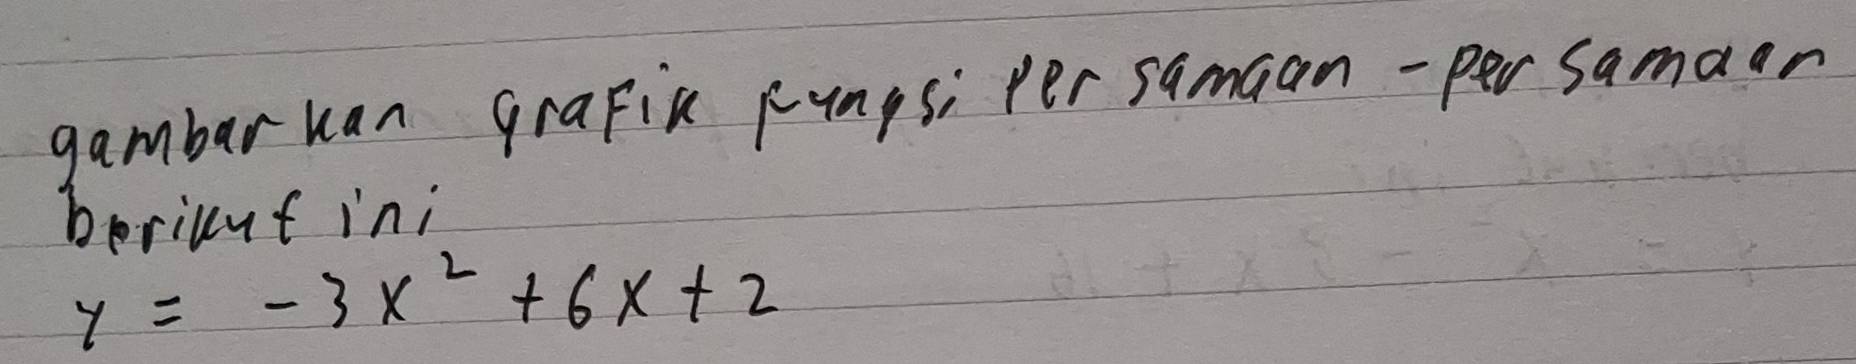 gambarkan grafik fungsi persamaan - persamaan
berikut ini
y = - 3x² + 6x + 2